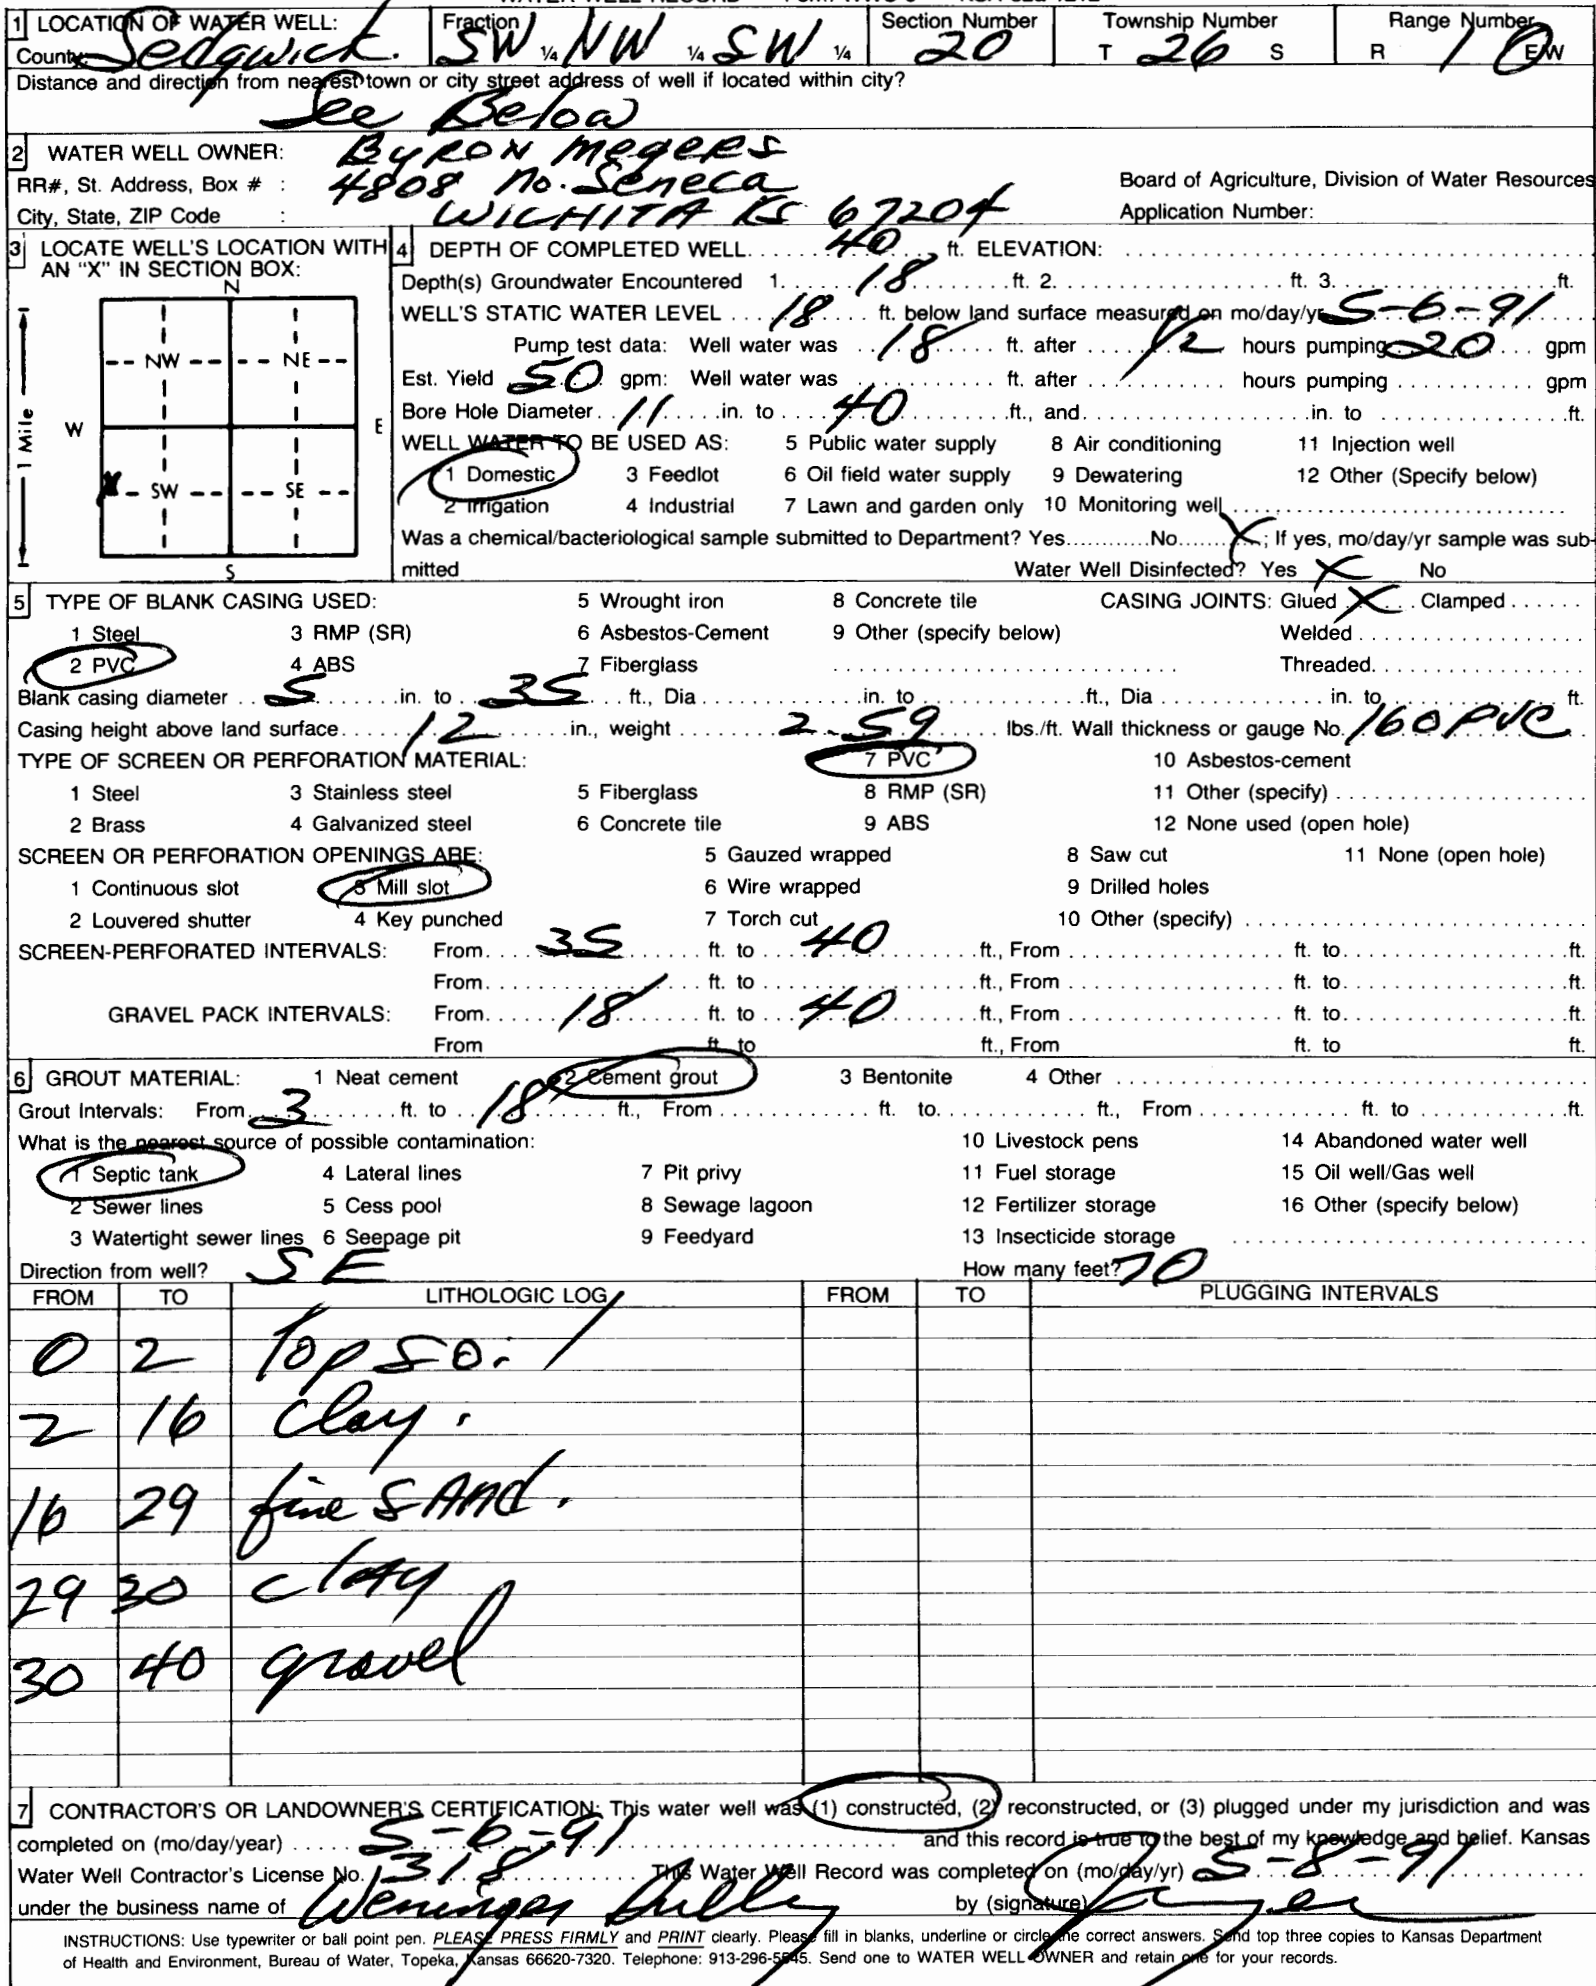 1 LOCATION OF WATER WELL: Fraction Section Number Township Number Range Number
County: Sedgwick. SW ¼ NW ¼ SW ¼ 20 T 26 S R 1 E/W
Distance and direction from nearest town or city street address of well if located within city?
See Below
2 WATER WELL OWNER: Byron Megers
RR#, St. Address, Box # : 4808 No. Seneca Board of Agriculture, Division of Water Resources
City, State, ZIP Code : WICHITA KS 67204 Application Number:
3 LOCATE WELL'S LOCATION WITH AN "X" IN SECTION BOX:
N
NW NE
W E
X SW SE
S
1 Mile
4 DEPTH OF COMPLETED WELL 40 ft. ELEVATION:
Depth(s) Groundwater Encountered 1. 18 ft. 2. ft. 3. ft.
WELL'S STATIC WATER LEVEL 18 ft. below land surface measured on mo/day/yr 5-6-91
Pump test data: Well water was 18 ft. after 1/2 hours pumping 20 gpm
Est. Yield 50 gpm: Well water was ft. after hours pumping gpm
Bore Hole Diameter 11 in. to 40 ft., and in. to ft.
WELL WATER TO BE USED AS: 5 Public water supply 8 Air conditioning 11 Injection well
1 Domestic 3 Feedlot 6 Oil field water supply 9 Dewatering 12 Other (Specify below)
2 Irrigation 4 Industrial 7 Lawn and garden only 10 Monitoring well
Was a chemical/bacteriological sample submitted to Department? Yes No X; If yes, mo/day/yr sample was sub-
mitted Water Well Disinfected? Yes X No
5 TYPE OF BLANK CASING USED: 5 Wrought iron 8 Concrete tile CASING JOINTS: Glued X Clamped
1 Steel 3 RMP (SR) 6 Asbestos-Cement 9 Other (specify below) Welded
2 PVC 4 ABS 7 Fiberglass Threaded
Blank casing diameter 5 in. to 35 ft., Dia in. to ft., Dia in. to ft.
Casing height above land surface 12 in., weight 2.59 lbs./ft. Wall thickness or gauge No. 160 PVC
TYPE OF SCREEN OR PERFORATION MATERIAL: 7 PVC 10 Asbestos-cement
1 Steel 3 Stainless steel 5 Fiberglass 8 RMP (SR) 11 Other (specify)
2 Brass 4 Galvanized steel 6 Concrete tile 9 ABS 12 None used (open hole)
SCREEN OR PERFORATION OPENINGS ARE: 5 Gauzed wrapped 8 Saw cut 11 None (open hole)
1 Continuous slot 3 Mill slot 6 Wire wrapped 9 Drilled holes
2 Louvered shutter 4 Key punched 7 Torch cut 10 Other (specify)
SCREEN-PERFORATED INTERVALS: From 35 ft. to 40 ft., From ft. to ft.
From ft. to ft., From ft. to ft.
GRAVEL PACK INTERVALS: From 18 ft. to 40 ft., From ft. to ft.
From ft. to ft., From ft. to ft.
6 GROUT MATERIAL: 1 Neat cement 2 Cement grout 3 Bentonite 4 Other
Grout Intervals: From 3 ft. to 18 ft., From ft. to ft., From ft. to ft.
What is the nearest source of possible contamination: 10 Livestock pens 14 Abandoned water well
1 Septic tank 4 Lateral lines 7 Pit privy 11 Fuel storage 15 Oil well/Gas well
2 Sewer lines 5 Cess pool 8 Sewage lagoon 12 Fertilizer storage 16 Other (specify below)
3 Watertight sewer lines 6 Seepage pit 9 Feedyard 13 Insecticide storage
Direction from well? SE How many feet? 70
FROM TO LITHOLOGIC LOG FROM TO PLUGGING INTERVALS
0 2 Top soil
2 16 Clay.
16 29 fine SANd.
29 30 clay
30 40 gravel
7 CONTRACTOR'S OR LANDOWNER'S CERTIFICATION: This water well was (1) constructed, (2) reconstructed, or (3) plugged under my jurisdiction and was
completed on (mo/day/year) 5-6-91 and this record is true to the best of my knowledge and belief. Kansas
Water Well Contractor's License No. 318 This Water Well Record was completed on (mo/day/yr) 5-8-91
under the business name of Weninger by (signature)
INSTRUCTIONS: Use typewriter or ball point pen. PLEASE PRESS FIRMLY and PRINT clearly. Please fill in blanks, underline or circle the correct answers. Send top three copies to Kansas Department
of Health and Environment, Bureau of Water, Topeka, Kansas 66620-7320. Telephone: 913-296-5545. Send one to WATER WELL OWNER and retain one for your records.